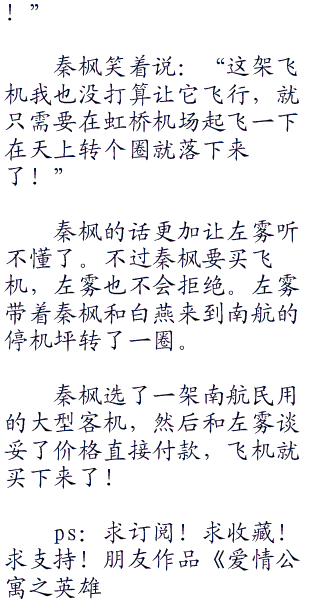 ！”
秦枫笑着说：“这架飞
机我也没打算让它飞行，就
只需要在虹桥机场起飞一下
在天上转个圈就落下来
了！”
秦枫的话更加让左雾听
不懂了。不过秦枫要买飞
机，左雾也不会拒绝。左雾
带着秦枫和白燕来到南航的
停机坪转了一圈。
秦枫选了一架南航民用
的大型客机，然后和左雾谈
妥了价格直接付款，飞机就
买下来了！
ps：求订阅！求收藏！
求支持！朋友作品《爱情公
寓之英雄